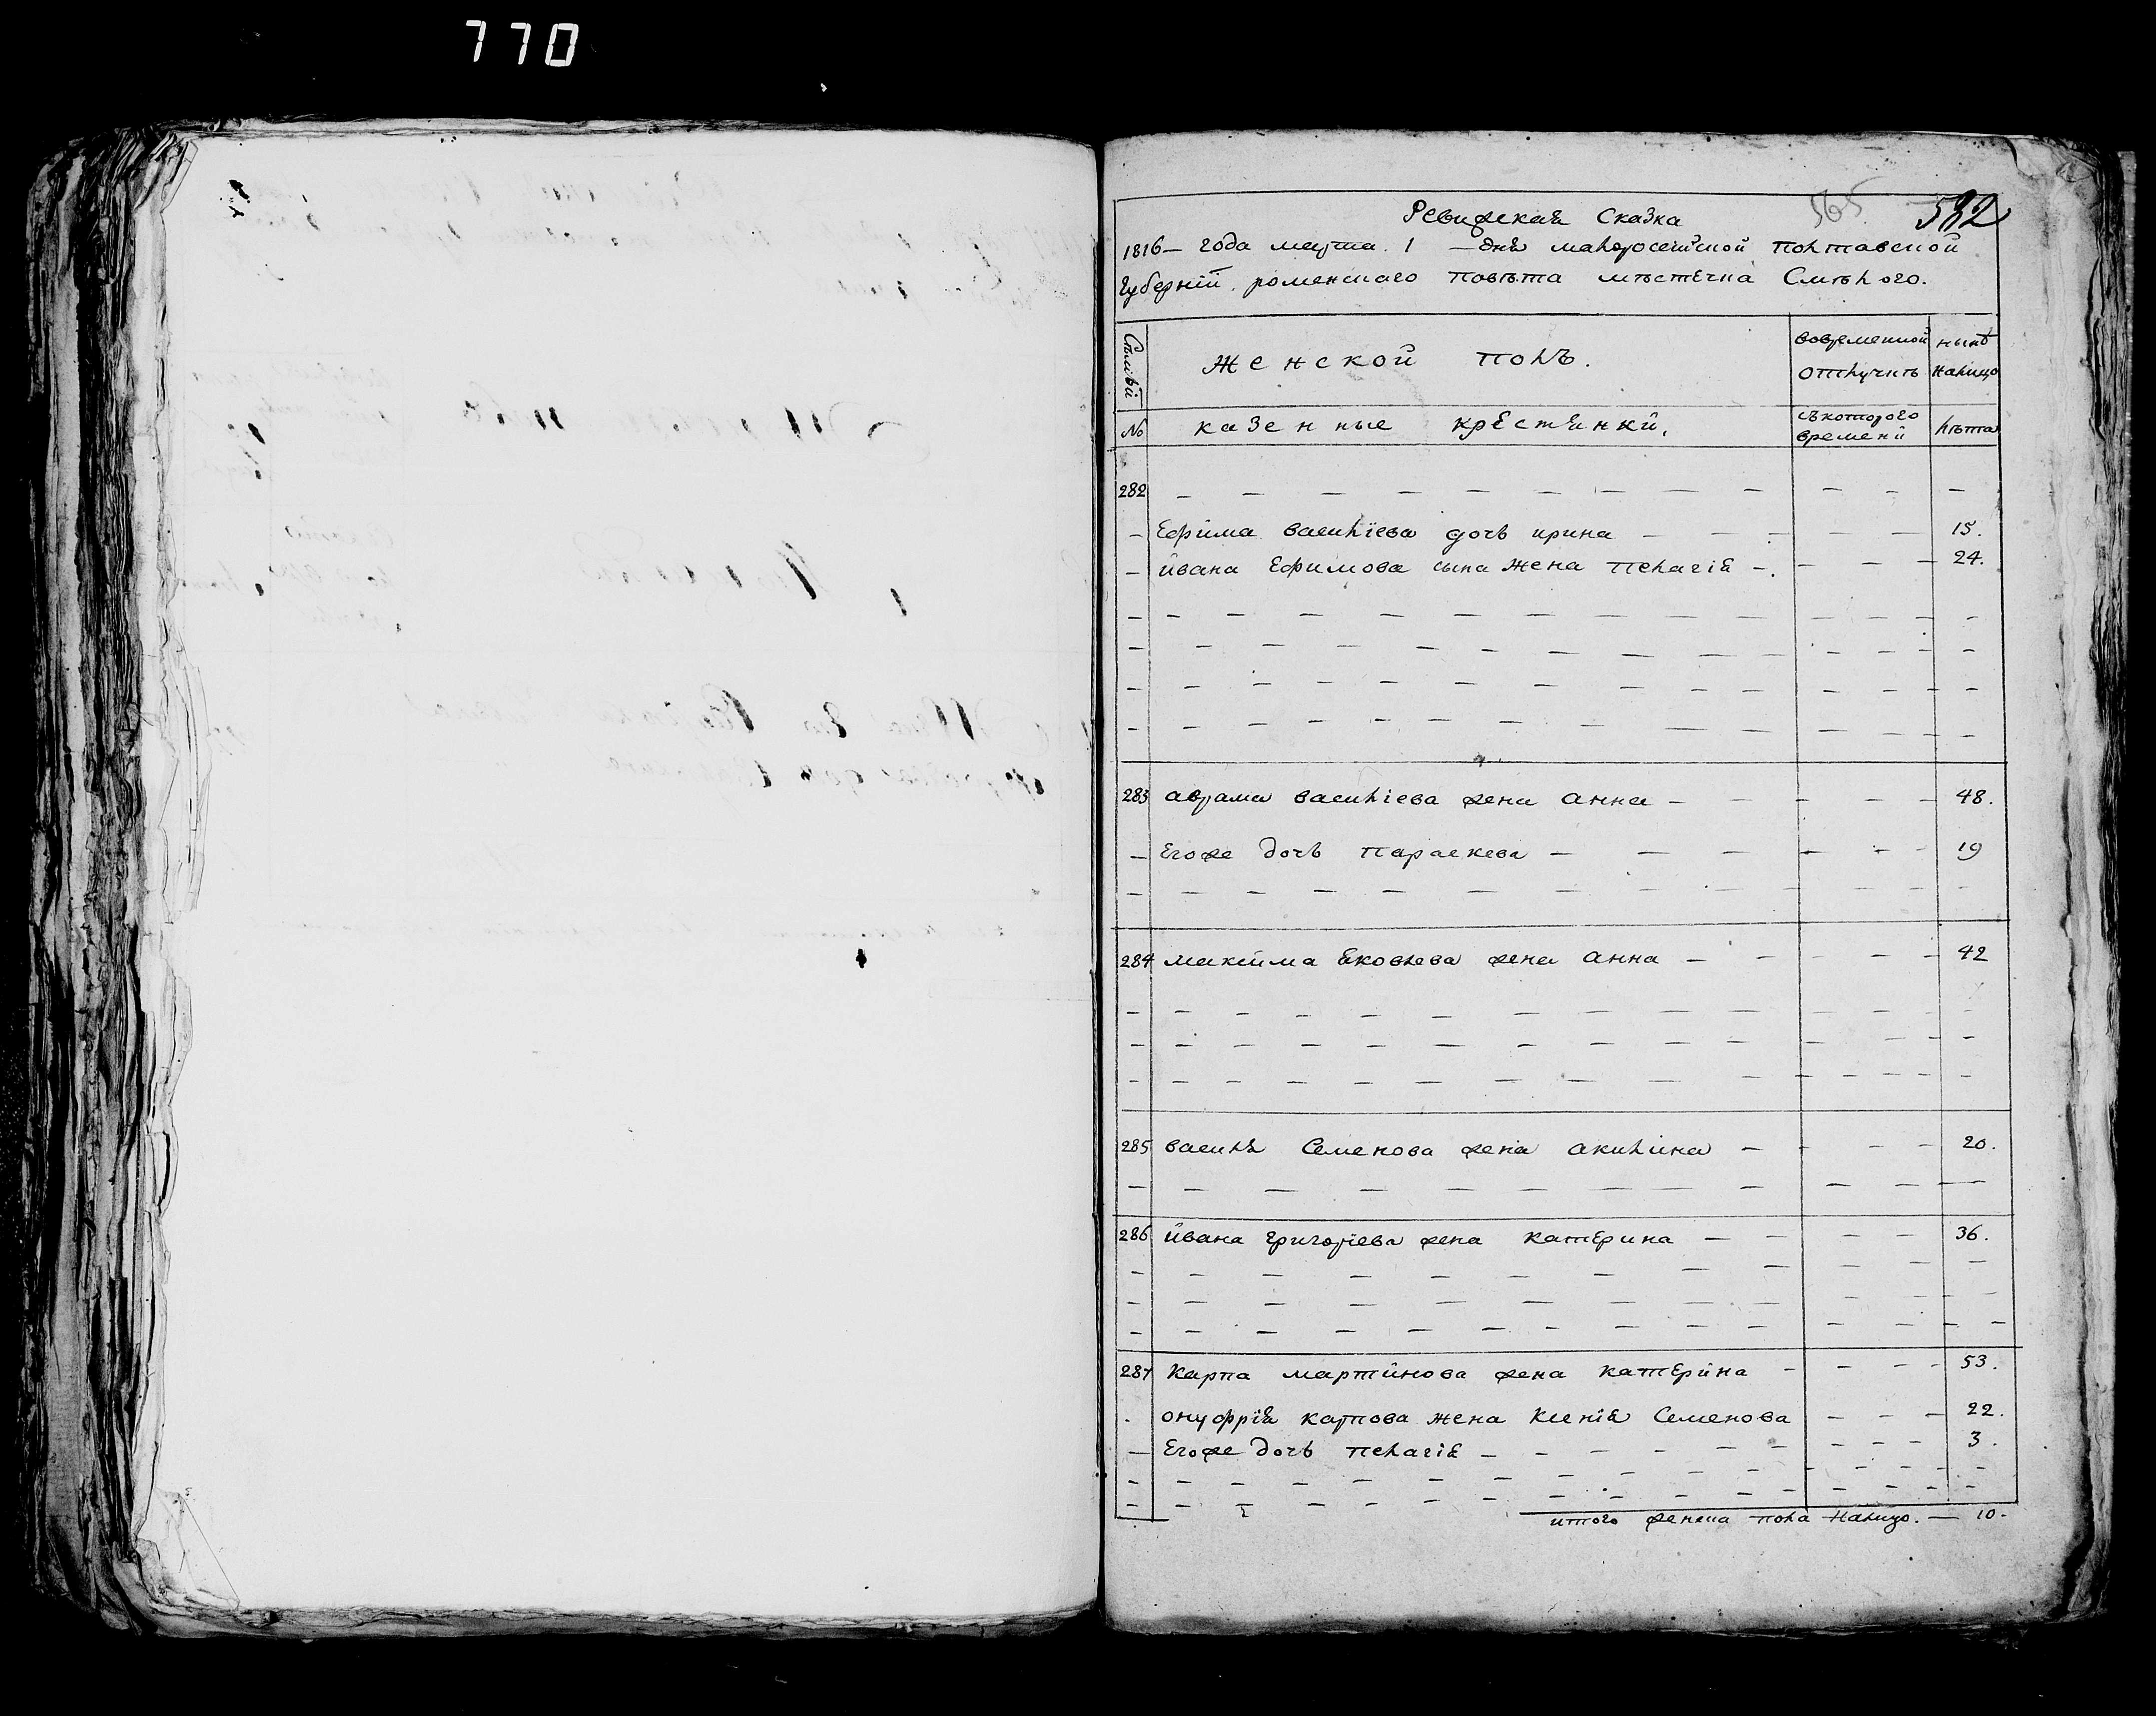 770
565 532
Ревизская Сказка
1816 – года марта 1 – дня малоросейской полтавской
Губерній роменского повѣта мѣстечка Смѣлого.
Сѣмьѣй
№
женской полъ.
казенные крестянки.
вовременной отлучить
съ которого времени
нынѣ налицо
лѣта
282 – – – – – – – – – – – –
– Ефима василіева дочь ирина – – – – – – 15.
– ивана Ефимова сына жена пелагія – – – – 24.
283 аврама василіева жена анна – – – – – 48.
– Егоже дочь параскева – – – – – – 19
284 максима яковлева жена анна – – – – – 42
285 василя Семенова жена акилина – – – – 20.
286 ивана григоріева жена катерина – – – – – 36.
287 карпа мартинова жена катерина – – – – 53.
. онуфрія карпова жена ксенія Семенова – – – 22.
– Егоже дочь пелагія – – – – – – – – 3.
итого женска пола налицо. – 10.